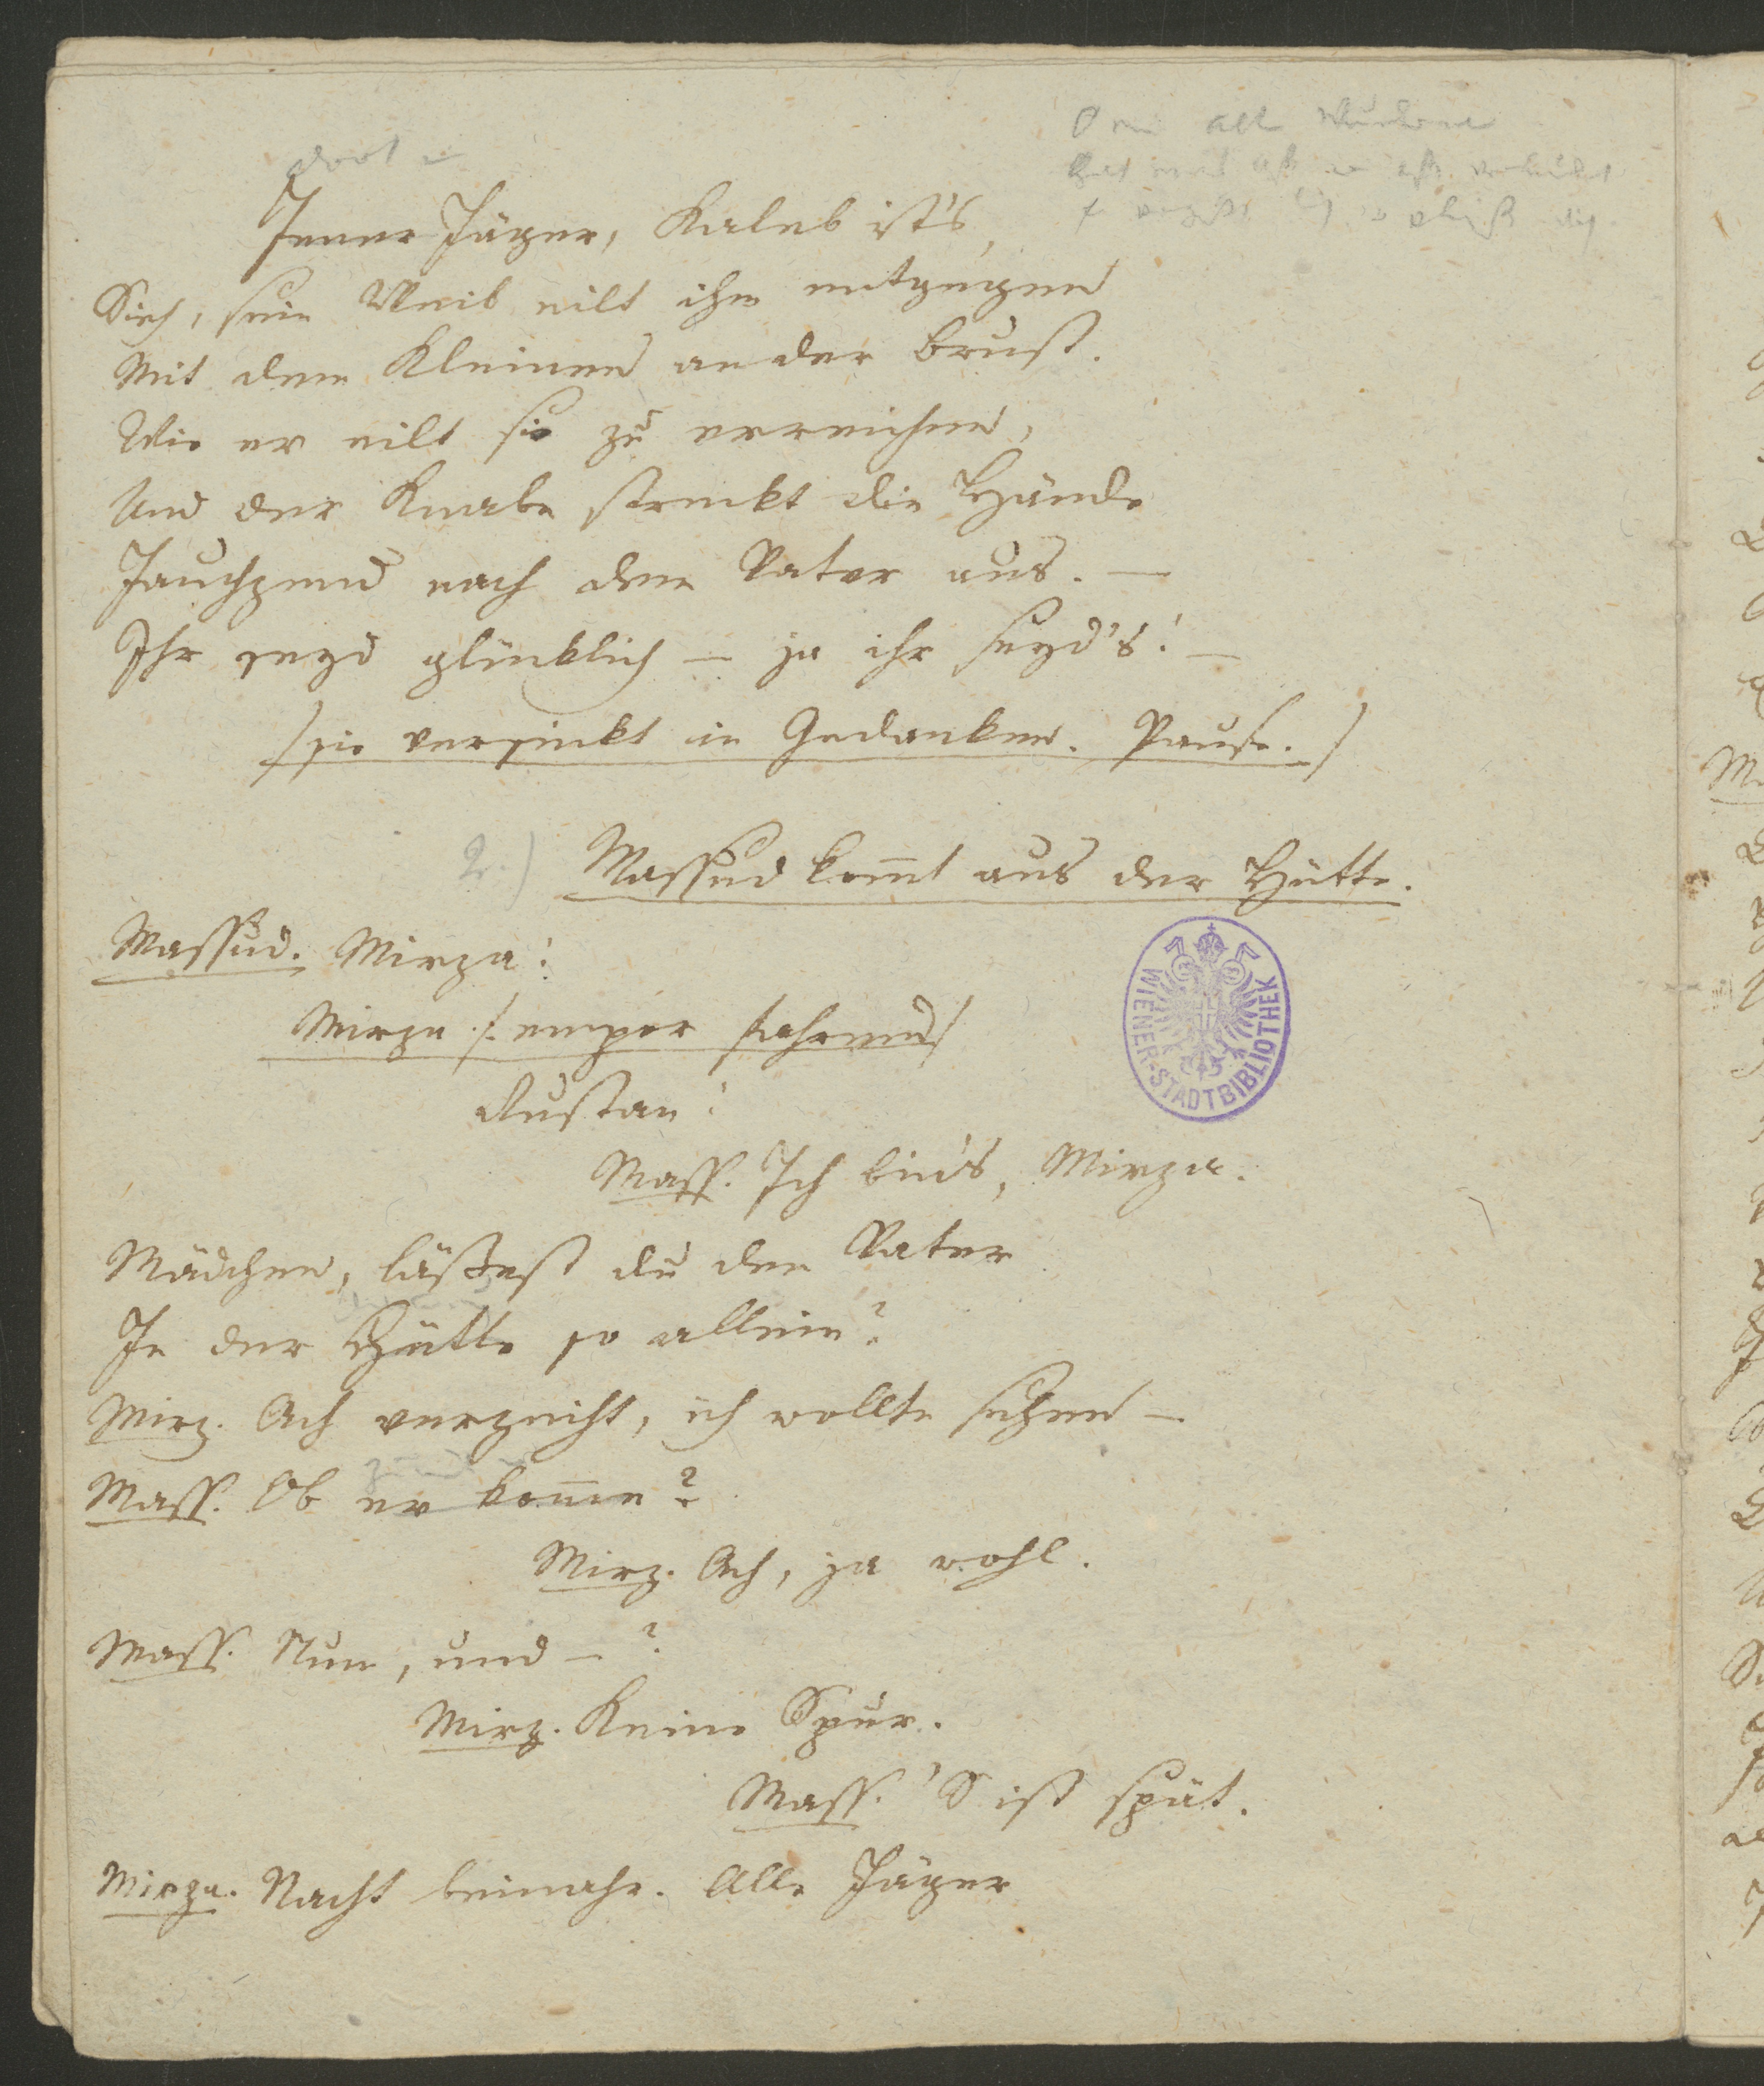 Jener Jäger, Kaleb ist's,
Sieh, sein Weib eilt ihm entgegen
Mit dem Kleinen an der Brust.
Wie er eilt sie zu erreichen,
Und der Knabe streckt die Hände
Jauchzend nach dem Vater aus. —
Ihr seyd glücklich — ja ihr seyd's! —
/sie versinkt in Gedanken. Pause./
2.) Massud kom̄t aus der Hütte.
Massud. Mirza!
Mirza /: empor fahrend/
Rustan!
Mass. Ich bin's, Mirza.
Mädchen, läßest du den Vater
In der Hütte so allein?
Mirz. Ach verzeiht, ich wollte sehen —
Mass. Ob er kom̄e?
Mirz. Ach, ja wohl.
Mass. Nun, und — ?
Mirz. Keine Spur.
Mass. 'S ist spät.
Mirza. Nacht beinahe. Alle Jäger
WIENER-STADTBIBLIOTHEK